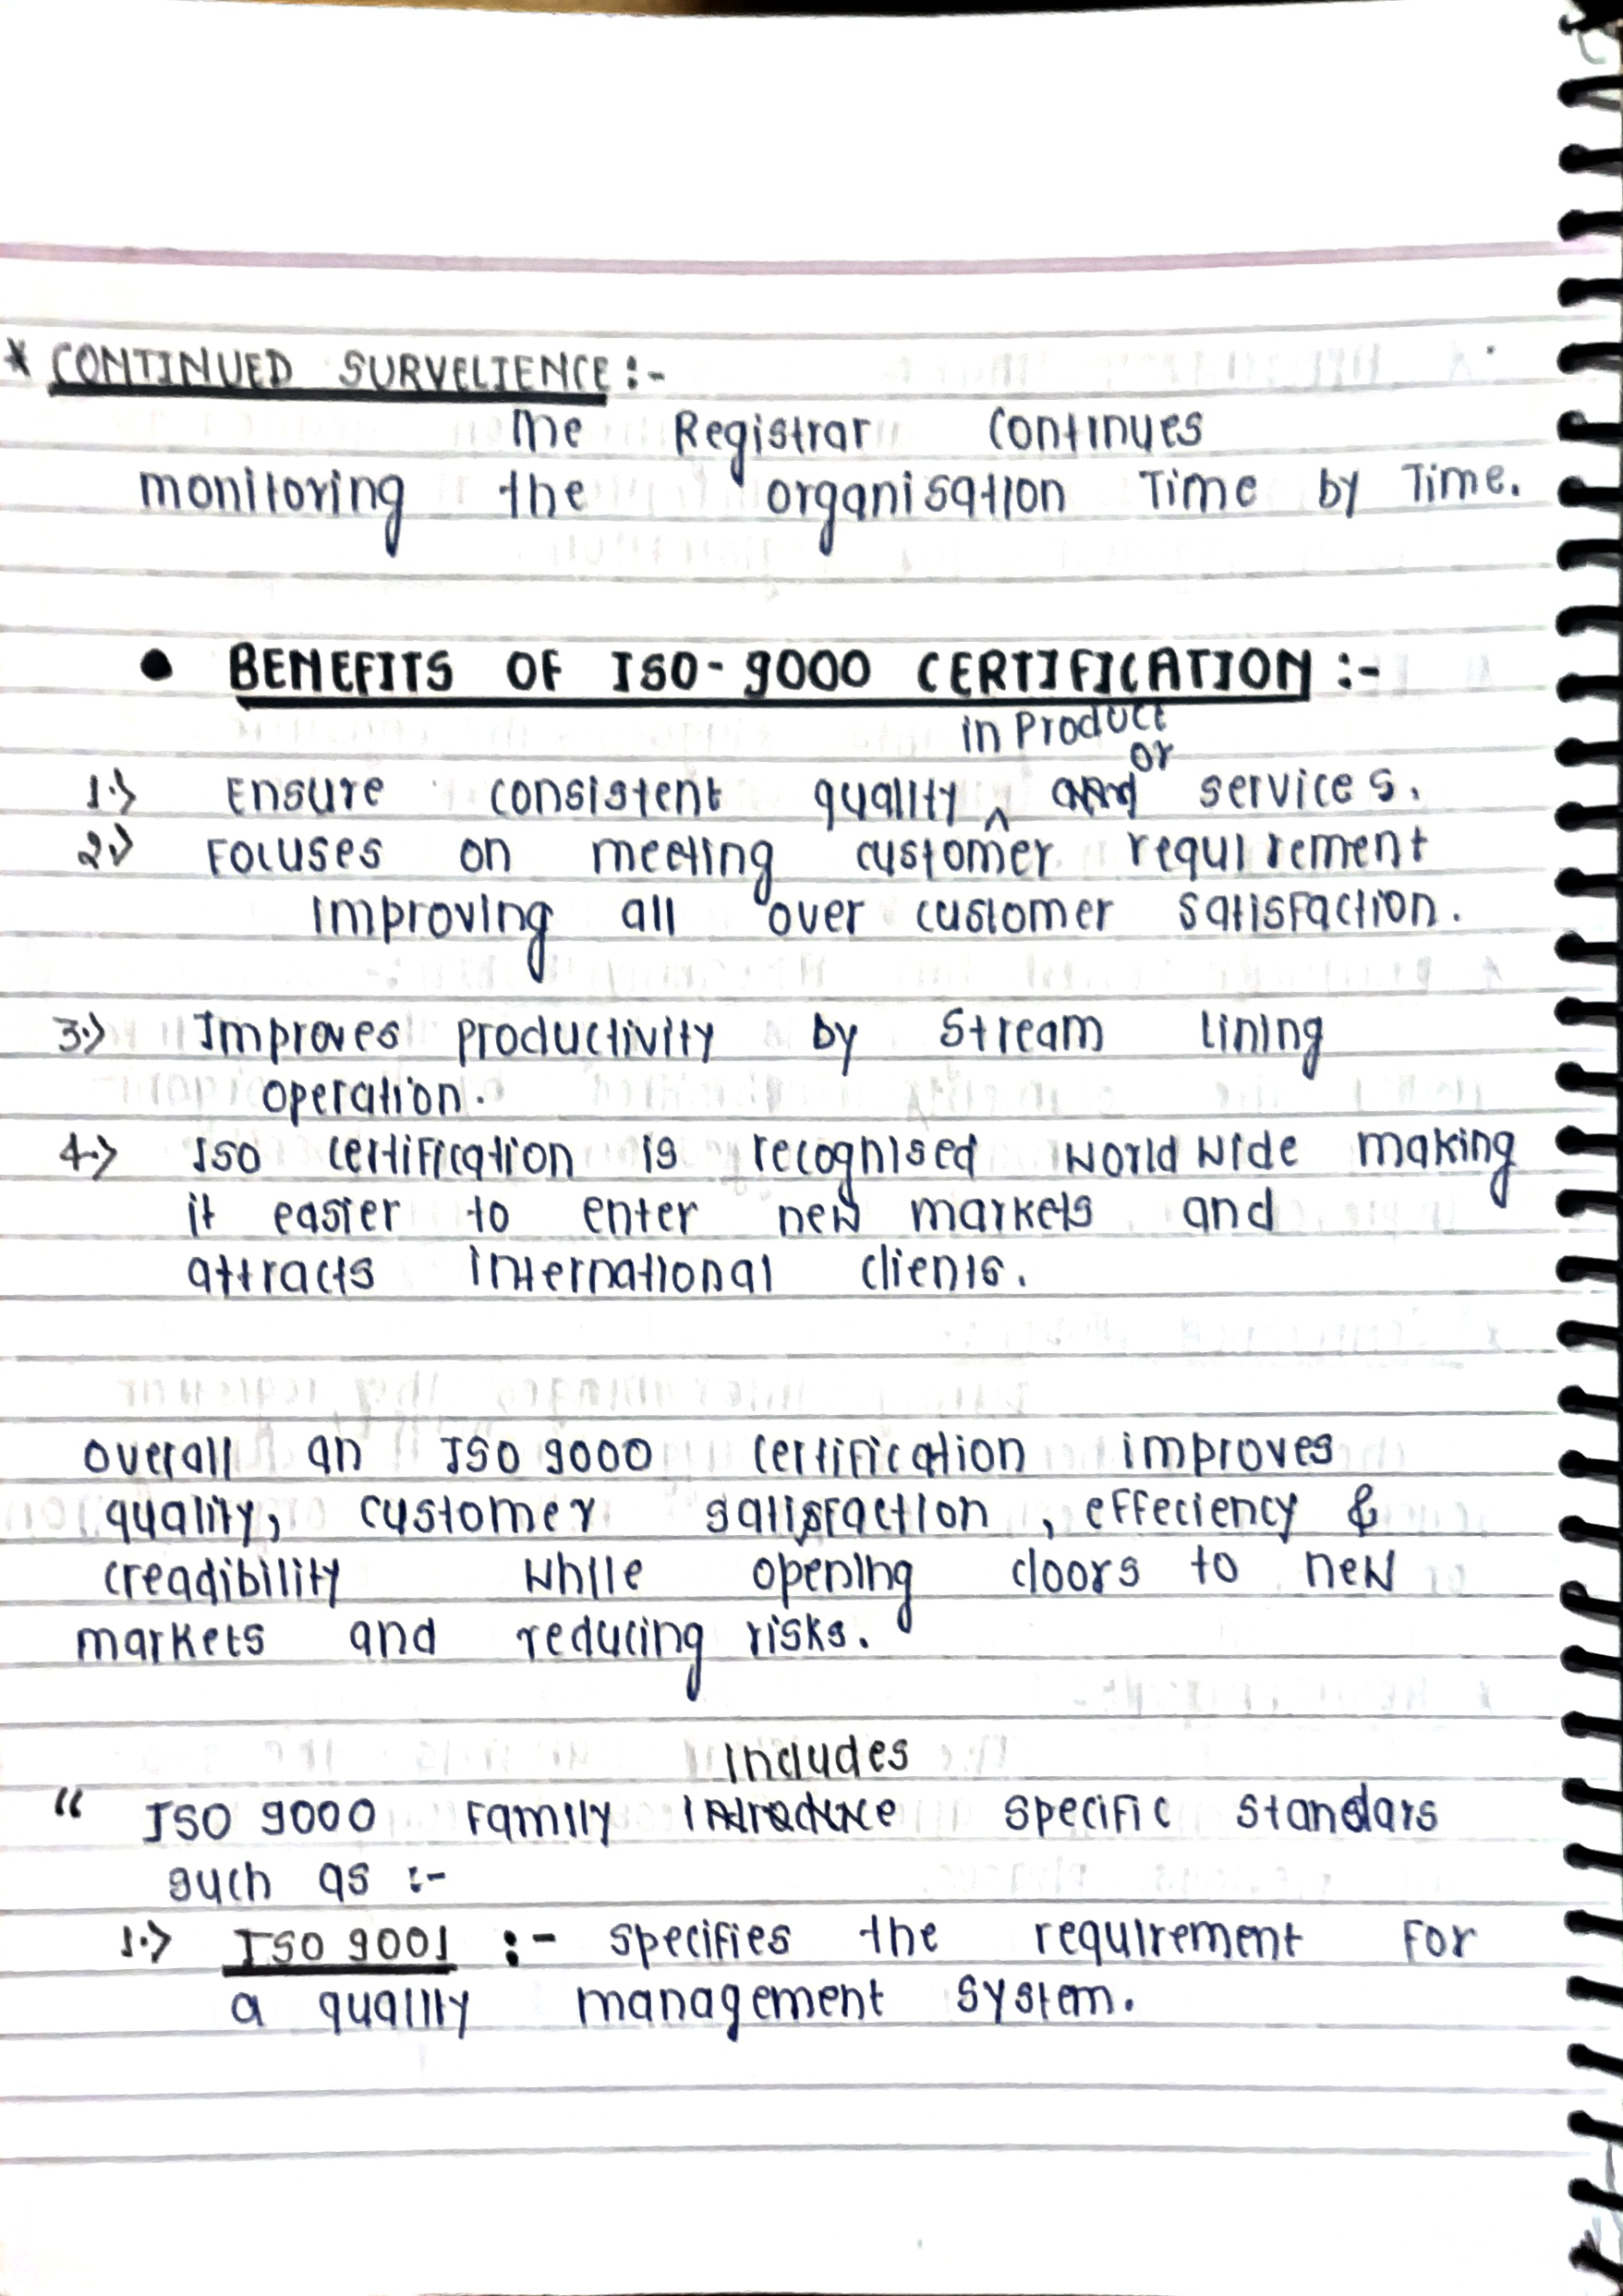 * CONTINUED SURVELIENCE :-
The Registrar continues
monitoring the organisation Time by Time.
• BENEFITS OF ISO-9000 CERTIFICATION :-
in Product
or
1.> Ensure consistent quality ^ services.
2.> Focuses on meeting customer requirement
improving all over customer satisfaction.
3.> Improves productivity by Stream lining
operation.
4.> ISO certification is recognised world wide making
it easier to enter new markets and
attracts international clients.
Overall an ISO 9000 certification improves
quality, customer satisfaction, effeciency &
creadibility while opening doors to new
markets and reducing risks.
includes
“ ISO 9000 Family specific standars
such as :-
1.> ISO 9001 :- specifies the requirement for
a quality management system.